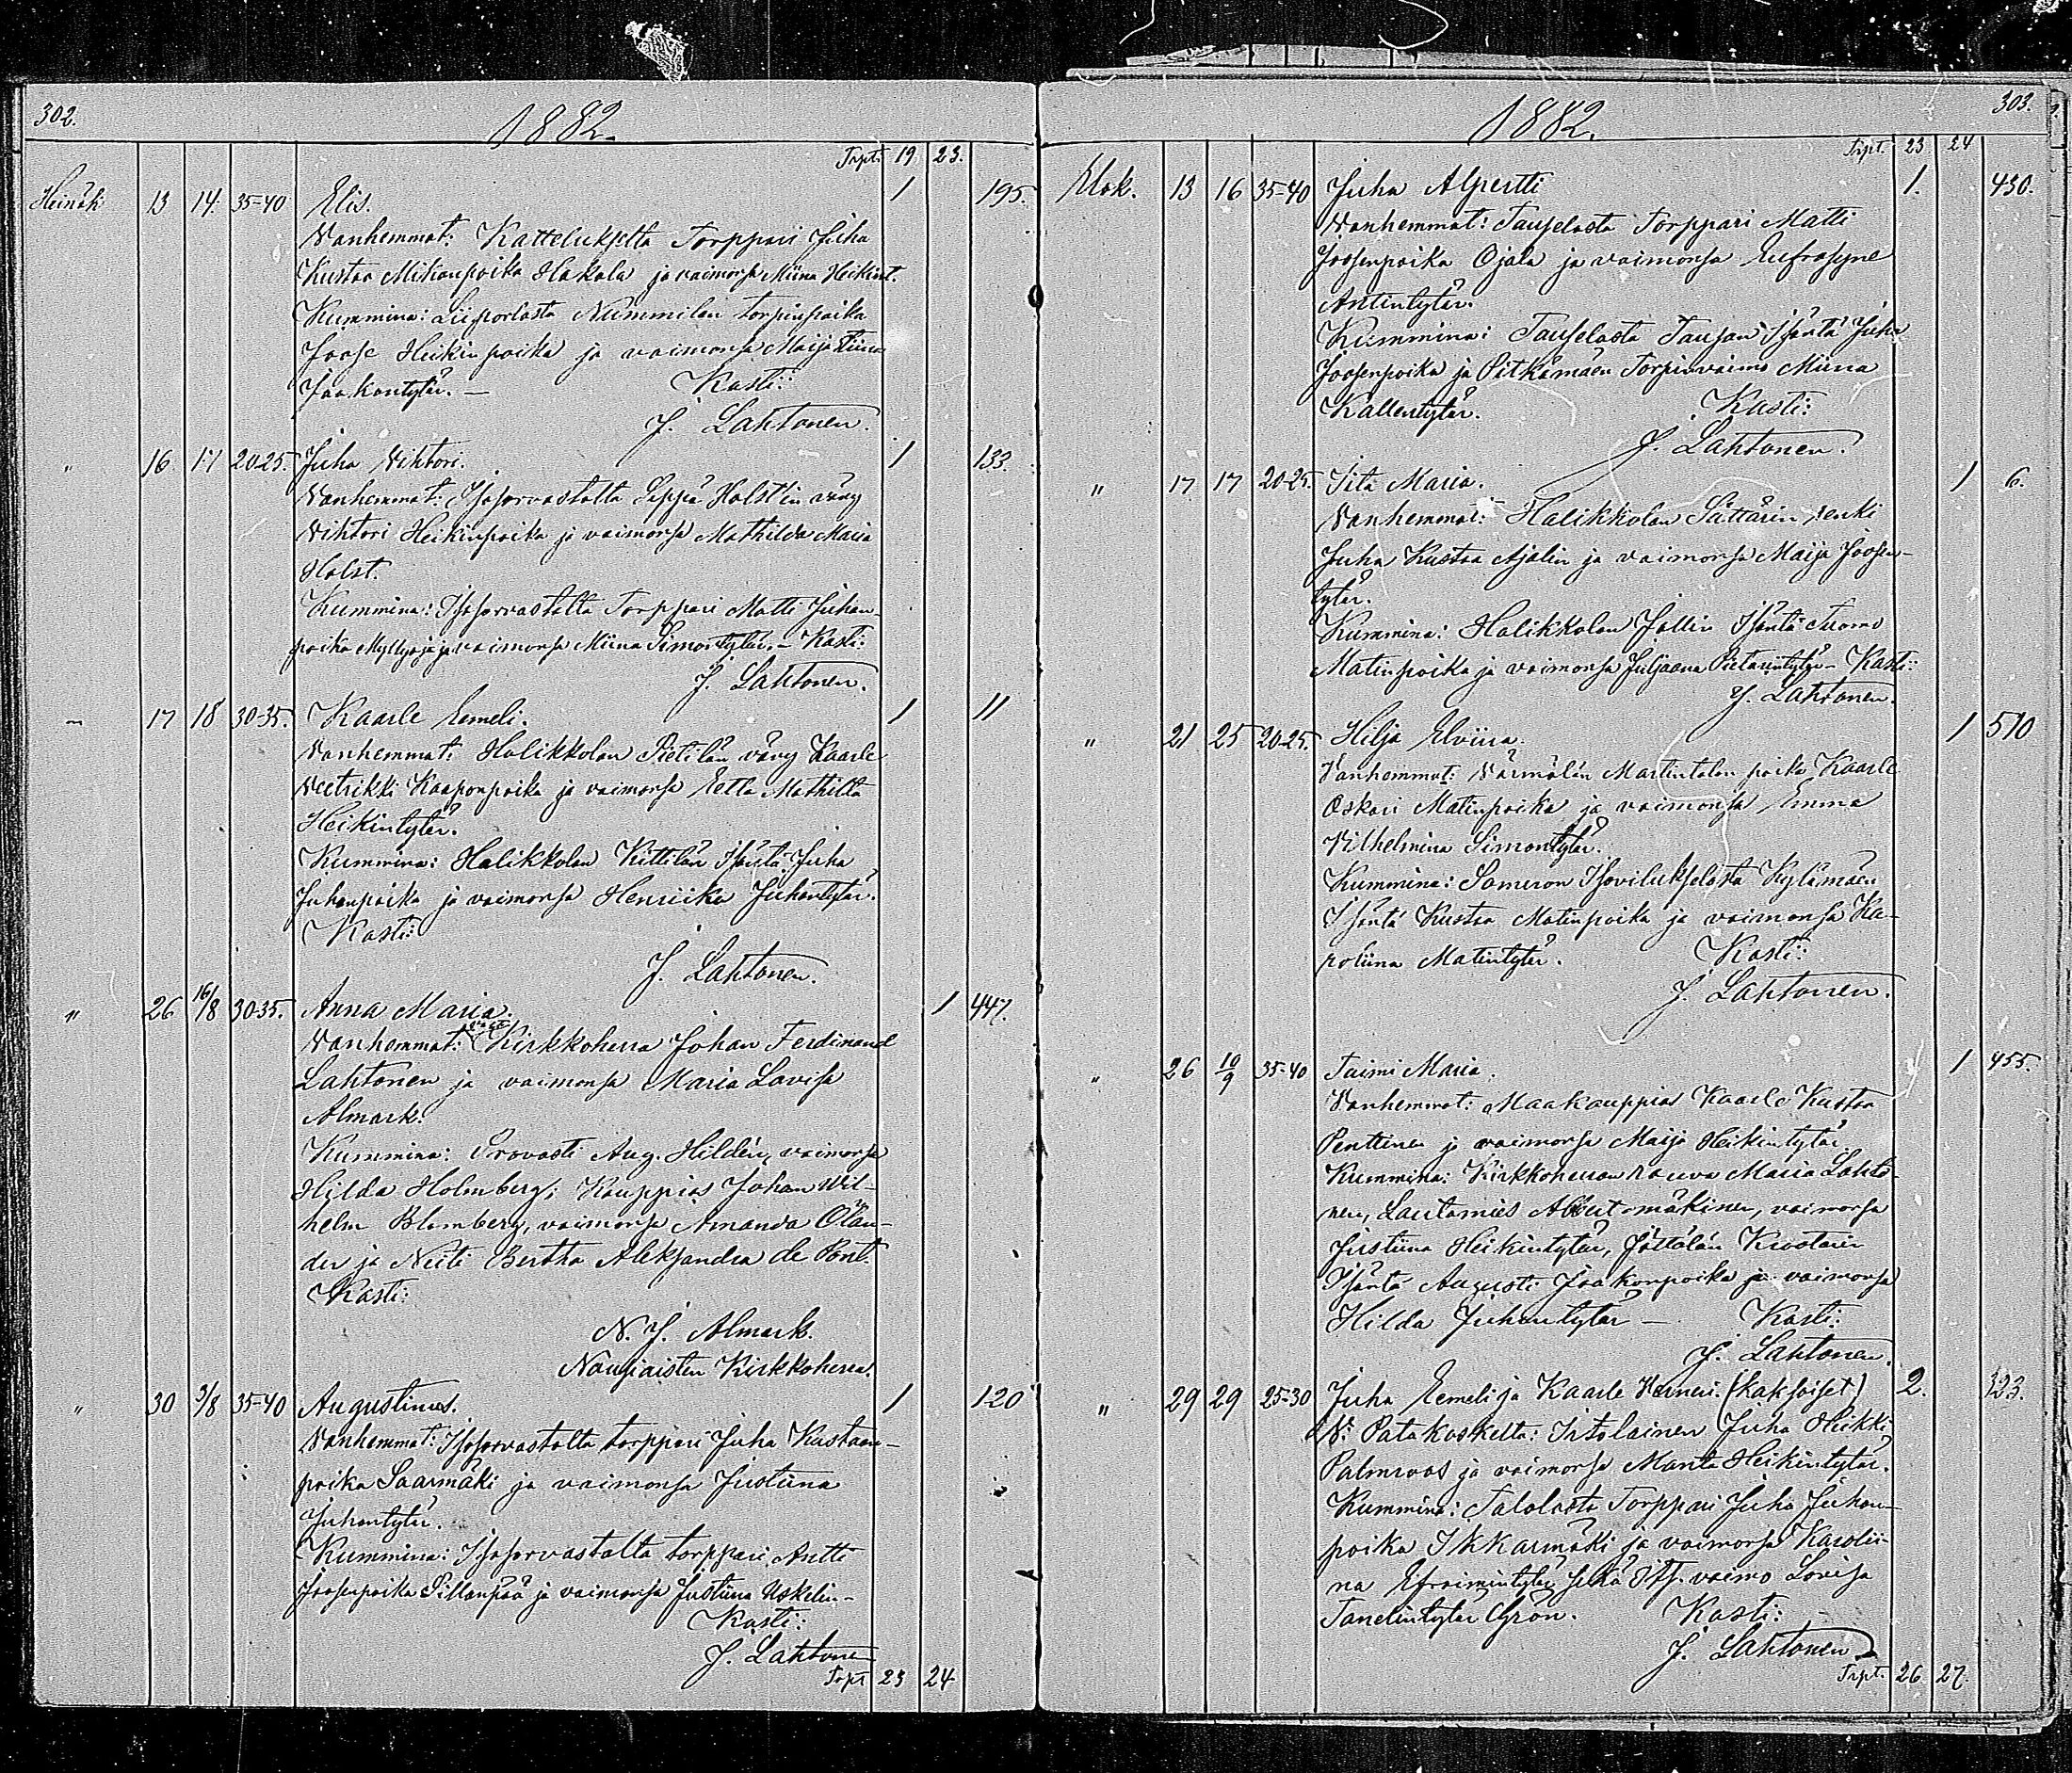 302.
1882.
Trpt. 19 23.
Heinäk. 13 14. 35-40 Elis. 1 195.
Vanhemmat: Kattelukselta Torppari Juha
Kustaa Mikonpoika Hakala ja vaimonsa Miina Heikint.
Kummina: Liiporlasta Nummilan torpinpoika
Joose Heikinpoika ja vaimonsa Maija Stiina
Jaakontytär. — Kasti:
J. Lahtonen.
" 16 17 20-25. Juha Vihtori. 1 133.
Vanhemmat: Isosorvastolta Seppä Holst'in vävy
Vihtori Heikinpoika ja vaimonsa Mathilda Maria
Holst.
Kummina: Isosorvastolta Torppari Matti Juhan-
poika Myllyoja ja vaimonsa Miina Simontytär. - Kasti:
J. Lahtonen.
" 17 18 30-35. Kaarle Eemeli. 1 11
Vanhemmat: Halikkolan Pietilän vävy Kaarle
Veetrikki Kaaponpoika ja vaimonsa Eetla Mathilta
Heikintytär.
Kummina: Halikkolan Kittilän Isäntä Juha
Juhanpoika ja vaimonsa Henriika Juhantytär.
Kasti:
J. Lahtonen.
" 26 16/8 30-35. Anna Maria. 1 447.
Vanhemmat: Kirkkoherra Johan Ferdinand
Lahtonen ja vaimonsa Maria Lovisa
Almark.
Kummina: Provasti Aug. Hildén, vaimonsa
Hilda Holmberg; Kauppias Johan Wil-
helm Blomberg, vaimonsa Amanda Ölan-
der ja Neiti Bertha Aleksandra de Pont.
Kasti:
N. J. Almark.
Nousiaisten Kirkkoherra.
" 30 3/8 35-40 Augustinus. 1 120
Vanhemmat: Isosorvastolta torppari Juha Kustaan-
poika Saarmäki ja vaimonsa Justiina
Juhantytär.
Kummina: Isosorvastolta torppari Antti
Joosenpoika Sillanpää ja vaimonsa Justiina Uskelin-
Kasti:
J. Lahtonen
Trpt 23 24
303.
1882.
Trpt. 23 24
Elok. 13 16 35-40 Juha Alpertti 1. 430.
Vanhemmat: Tauselasta Torppari Matti
Joosenpoika Ojala ja vaimonsa Eufrosyne
Antintytär.
Kummina: Tauselasta Isäntä Juha
Joosenpoika ja Pitkämäen Torpinvaimo Miina
Kallentytär. Kasti:
J. Lahtonen.
" 17 17 20-25. Iita Maria. 1 6.
Vanhemmat: Halikkolan Sättärin renki
Juha Kustaa Ajalin ja vaimonsa Maija Joosen-
tytär.
Kummina: Halikkolan Jallin Isäntä Tuomo
Matinpoika ja vaimonsa Juljaana Pietarintytär - Kasti:
J. Lahtonen.
" 21 25 20-25. Hilja Elviira. 1 510
Vanhemmat: Värmälän Martintalon poika Kaarle
Oskari Matinpoika ja vaimonsa Emma
Vilhelmina Simontytär.
Kummina: Someron Isovilukselasta Kylämäen
Isäntä Kustaa Matinpoika ja vaimonsa Ka-
roliina Matintytär. Kasti:
J. Lahtonen.
" 26 10/9 35-40 Taimi Maria. 1 455.
Vanhemmat: Maakauppias Kaarle Kustaa
Penttinen ja vaimonsa Maija Heikintytär
Kummina: Kirkkoherran rouva Maria Lahto-
nen, Lautamies Albert mäkinen, vaimonsa
Justiina Heikintytär, Jättälän Krostarin
Isäntä Augusti Jaakonpoika ja vaimonsa
Hilda Juhantytär — Kasti:
J. Lahtonen.
" 29 29 25-30 Juha Eemeli ja Kaarle Verneri. (kaksoiset) 2. 323.
V: Patakoskelta: Irtolainen Juha Heikki
Palmroos ja vaimonsa Manta Heikintytär.
Kummina: Talolasta Torppari Juha Juhan-
poika Ikkarmäki ja vaimonsa Karolii-
na Efraimintytär sekä Its. vaimo Lovisa
Tanelintytär Grön. Kasti:
J. Lahtonen
Trpt. 26 27.